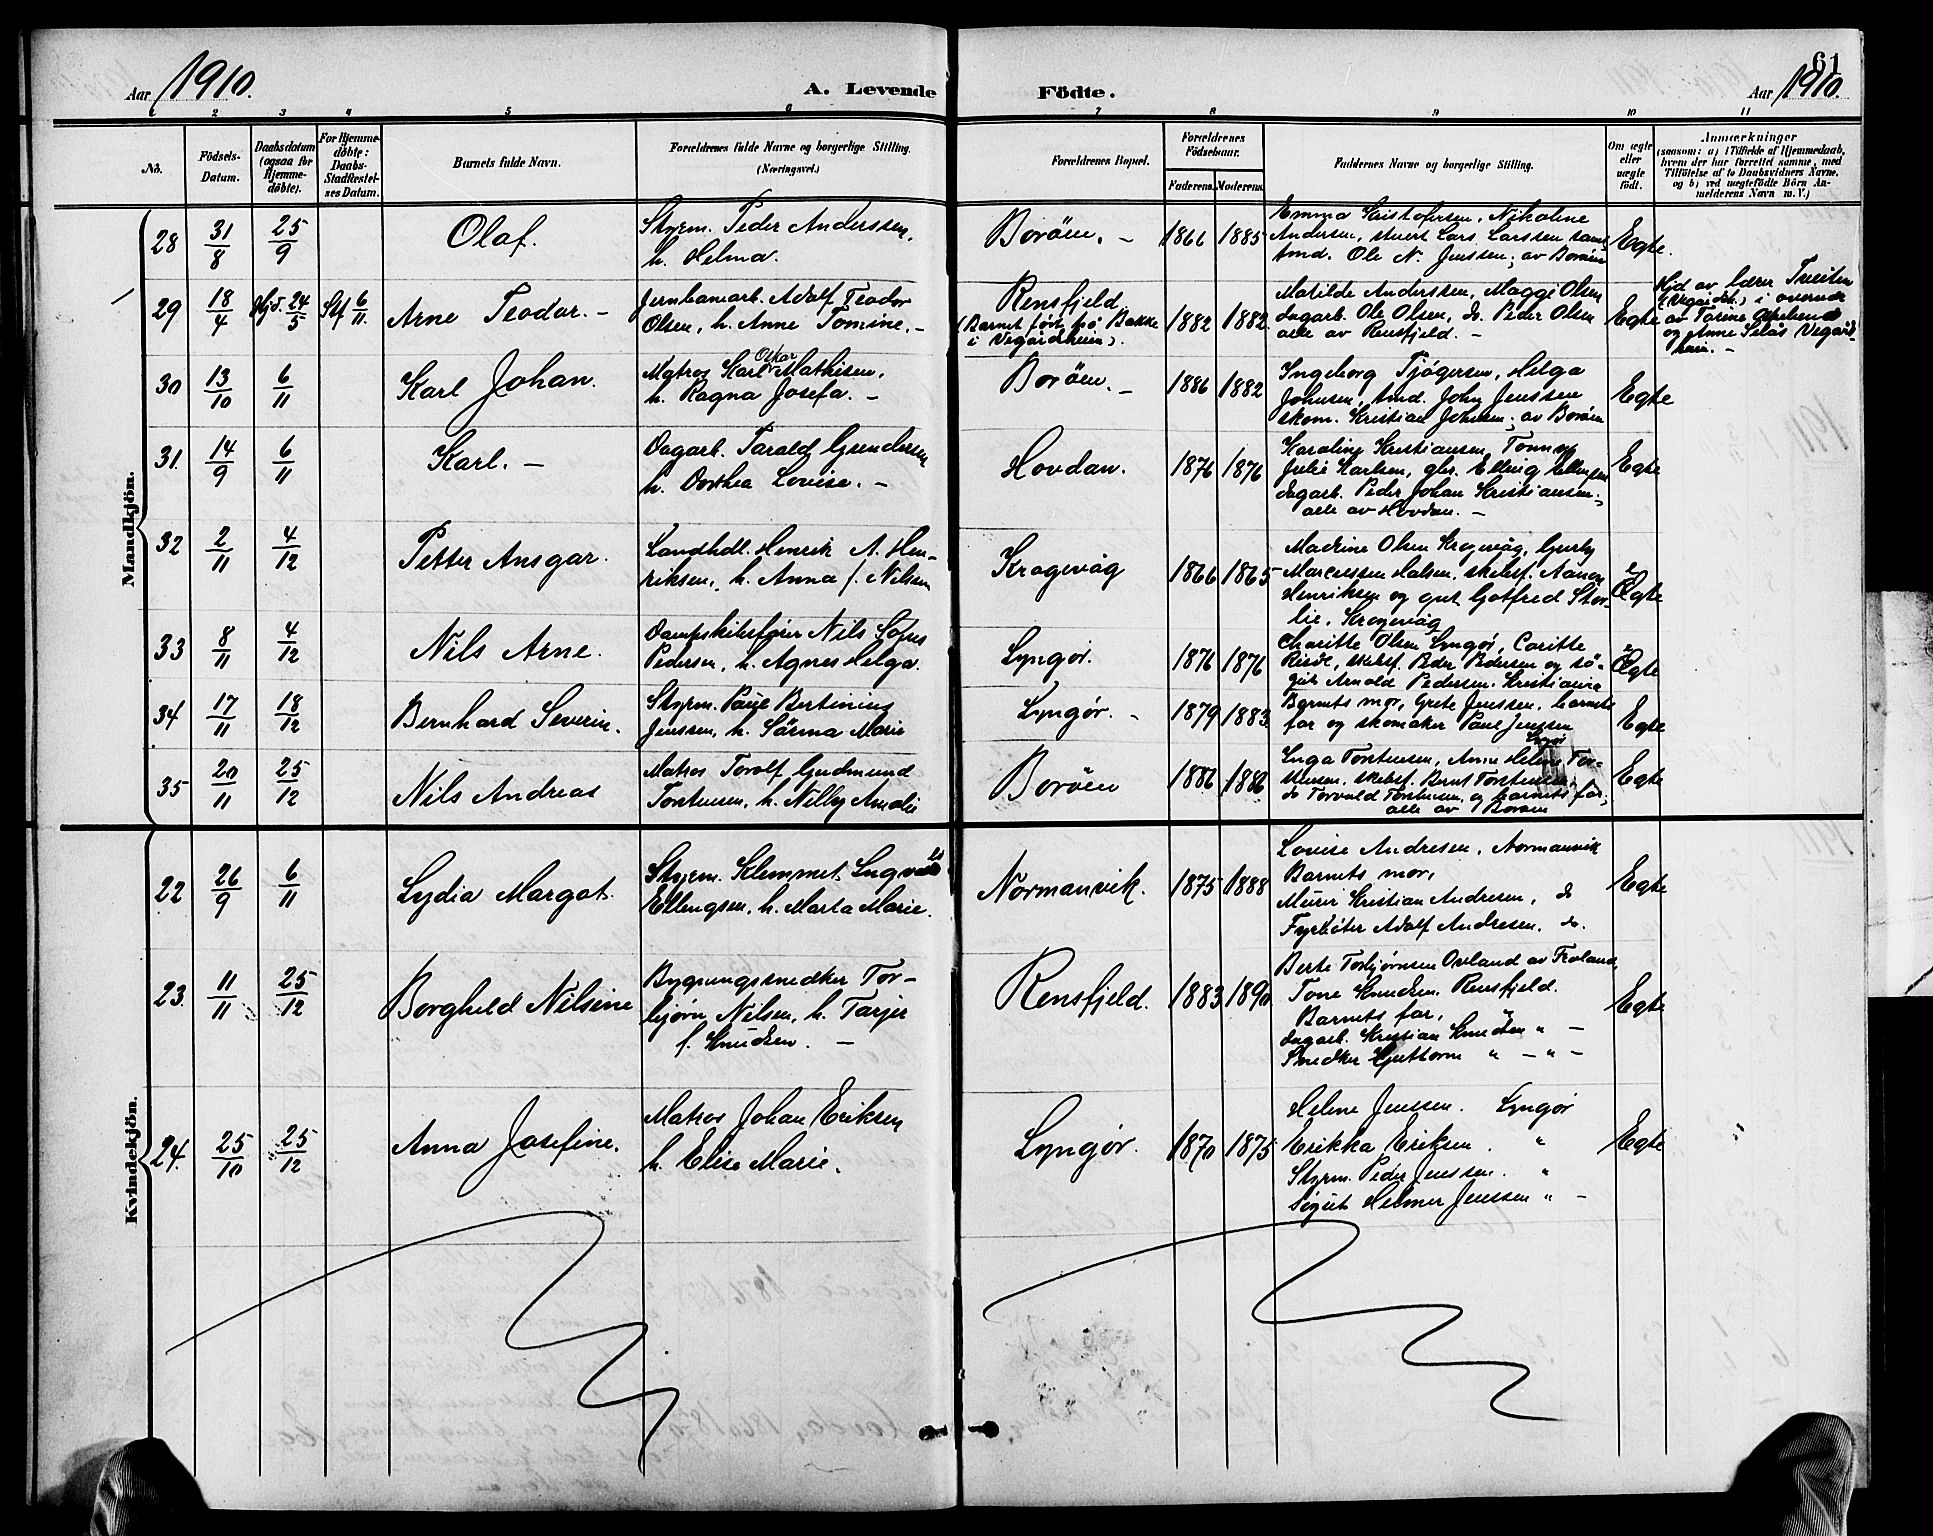 61
Aar 1910.
A. Levende Födte.
Aar 1910.
1 2 3 4 5 6 7 8 9 10 11
No.
Födsels-
Datum.
Daabsdatum
(ogsaa for
Hjemme-
døbte).
For Hjemme-
døbte:
Daabs-
Stadfæstel-
ses Datum.
Barnets fulde Navn.
Forældrenes fulde Navne og borgerlige Stilling.
(Næringsvei.)
Forældrenes Bopæl.
Forældrenes
Fødselsaar.
Faderens. Moderens.
Faddernes Navne og borgerlige Stilling.
Om ægte
eller
uægte
født.
Anmærkninger
(saasom: a) i Tilfælde af Hjemmedaab,
hvem der har forrettet samme, med
Tilføielse af to Daabsvidners Navne,
og b) ved uægtefødte Börn An-
melderens Navn m. V.)
Mandkjön.
28
31/8
25/9
Olaf.
Styrm. Peder Anderssen,
h. Helma.
Borøen. –
1866 1885
Emma Kristofersen, Nikoline
Andersen, stuert Lars Larssen samt
tmd. Ole N. Jenssen; av Borøen
Egte.
29
18/4
Hjd. 24/5
Stf 6/11.
Arne Teodor. –
Jernbanearb. Adolf Teodor
Olsen, h. Anne Tomine. –
Rensfjeld.
(Barnet født på Bakke
i Vegårdsheien).
1882 1882
Matilde Anderssen, Magge Olsen
dagarb. Ole Olsen, do. Peder Olsen
alle av Rensfjeld. –
Egte
Hjd av lærer Tveiten
(Vegårdsh.) i overvær
av Torine
og Anne Selås Vegårds-
heien. –
30
13/10
6/11
Karl Johan.
Matros Karl Oskar Mathisen,
h. Ragna Josefa. –
Borøen. –
1886 1882
Ingeborg Tjøgersen, Helga
Johnsen, tmd. John Jenssen
skom. Kristian Johnsen; av Borøen
Egte
31.
14/9
6/11
Karl. –
Dagarb. Tarald Gundersen
h. Dorthea Lovise. –
Hovdan.
1876 1876
Karoline Kristiansen, Tonny og
Julie Karlsen, gbr. Elling Ellingsen
dagarb. Peder Johan Kristiansen;
alle av Hovdan. –
Egte
32
2/11
4/12
Petter Ansgar.
Landhdl. Henrik A. Hen-
riksen, h. Anna f. Nilsen
Kragevåg
1866 1865
Madrine Olsen Kragevåg, Gurly
Marcussen Halsen, skibsf. Aanon
Henriksen og gut Gotfred Stor-
lie, Kragevåg
Ægte
33
8/11
4/12
Nils Arne.
Dampskibsfører Nils Sofus
Pedersen, h. Agnes Helga.
Lyngør.
1876 1876
Charitte Olsen Lyngør, Caritte
Riede, skibsf. Peder Pedersen og sø-
gut Arnold Pedersen. Kristiania
Ægte
34
17/11
18/12
Bernhard Severin.
Styrm. Paul Bertinius
Jenssen, h. Sörina Marie
Lyngør. –
1879 1883
Barnets mor, Grete Jenssen, barnets
far og skomaker Paul Jenssen
Lyngør
Egte
35
20/11
25/12
Nils Andreas
Matros Torolf Gudmund
Torstensen, h. Nilly Amalie
Borøen
1886 1886
Inga Torstensen, Anne Helene Tor-
stensen, skibsf. Bernt Torstensen,
do Torvald Torstensen, og barnets far;
alle av Borøen
Egte
Kvindekjön.
22
26/9
6/11
Lydia Margot.
Styrm. Klemmet Ingvald
Ellengsen, h. Marta Marie.
Normanvik.
1875 1888
Lovise Andresen, Normanvik
Barnets mor,
Murer Kristian Andresen, do
Fyrbøter Adolf Andresen. do.
Egte
23.
11/11
25/12
Borghild Nilsine
Bygningssnedker Tor-
bjørn Nilsen, h. Tarjer
f. Knudsen. –
Rensfjeld.
1883 1890
Berte Torbjørnsen Osland av Froland,
Tone Knudsen. Rensfjeld.
Barnets far, "
dagarb. Kristian Knudsen " –
Snedker Guttorm " – " –
Egte
24.
25/10
25/12
Anna Josefine.
Matros Johan Eriksen
h. Elise Marie.
Lyngør.
1870 1875
Helene Jenssen. Lyngør
Erikka Eriksen. "
Styrm. Peder Jenssen. "
Søgut Helmer Jenssen " –
Egte